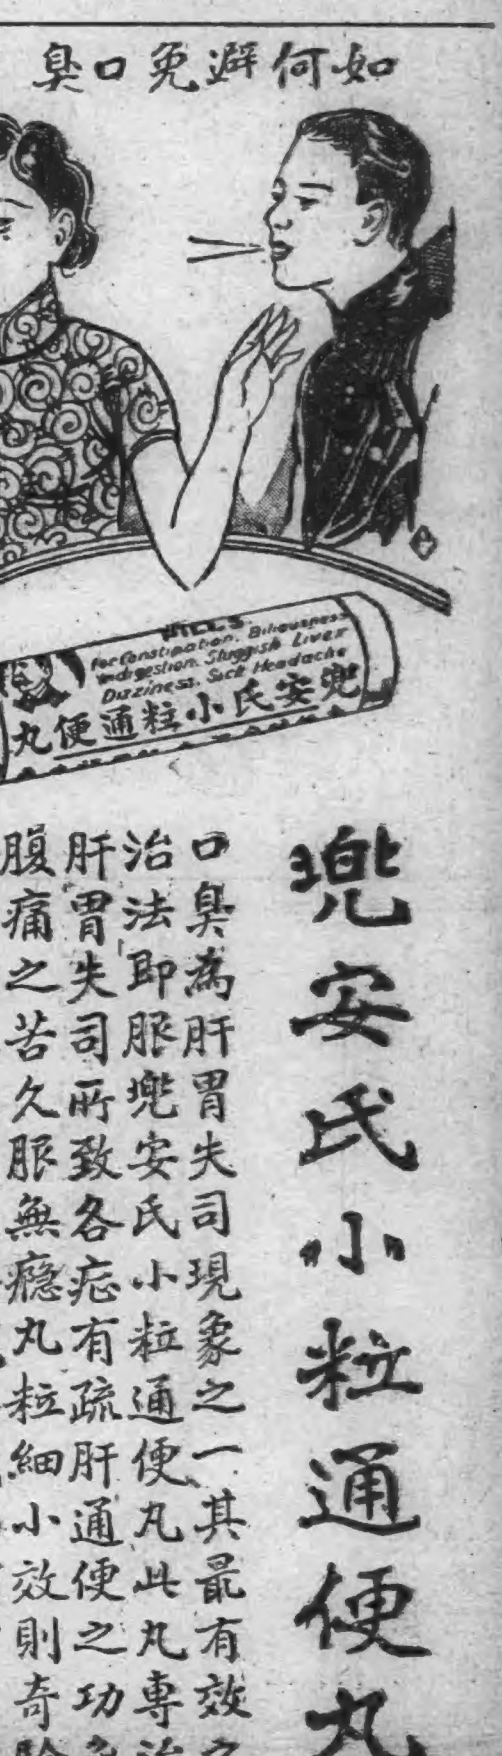 如何避免口臭
PILLS
for Constipation. Biliousness
Indigestion. Sluggish Liver
Dizziness. Sick Headache
兜安氏小粒通便丸
兜安氏小粒通便丸
口臭為肝胃失司現象之一其最有效之
治法即服兜安氏小粒通便丸此丸專治
肝胃失司所致各症有疏肝通便之功
腹痛之苦久服無瘾丸粒細小效則奇